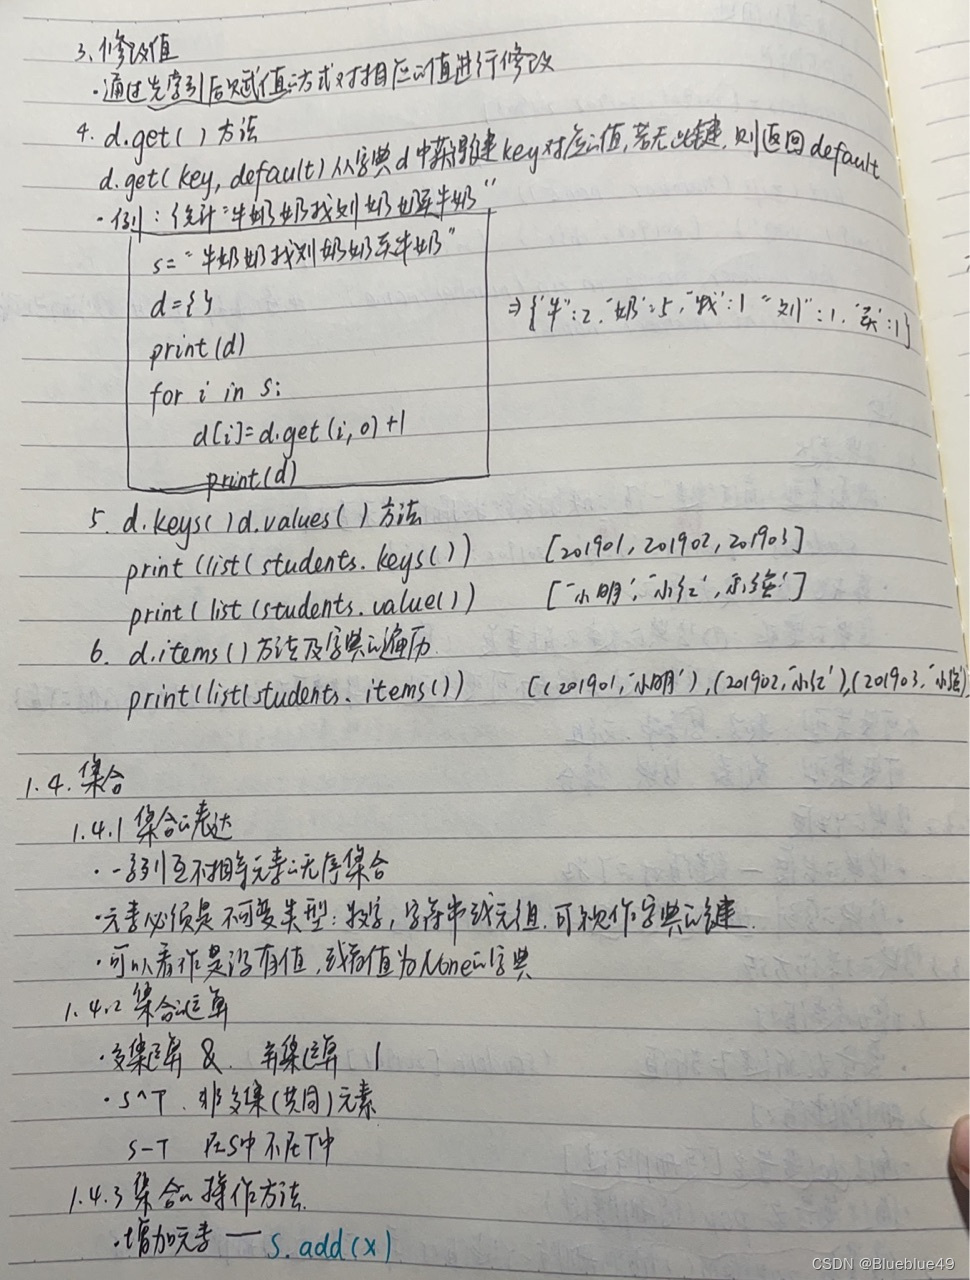 3. 修改值
·通过先索引后赋值的方式对相应的值进行修改
4. d.get() 方法
d.get(key, default) 从字典d中获得键key对应的值,若无此键,则返回default
·例:统计“牛奶奶找刘奶奶买牛奶”
s="牛奶奶找刘奶奶买牛奶"
d={}
print(d)
for i in s:
d[i]=d.get(i,0)+1
print(d)
⇒{"牛":2,"奶":5,"找":1 "刘":1,"买":1}
5. d.keys() d.values() 方法
print(list(students.keys()) [201901, 201902, 201903]
print(list(students.value()) ["小明","小红",
6. d.items()方法及字典的遍历
print(list(students.items()) [(201901,"小明"),(201902,"小红"),(201903,
1.4. 集合
1.4.1 集合的表达
·一系列互不相等元素的无序集合
·元素必须是不可变类型:数字,字符串或元组,可视作字典的键.
·可以看作是没有值,或者值为None的字典
1.4.2 集合的运算
·交集运算 & . 并集运算 |
·S^T . 非交集(共同)元素
S-T 在S中不在T中
1.4.3 集合的操作方法.
·增加元素 — S.add(x)
CSDN @Blueblue49